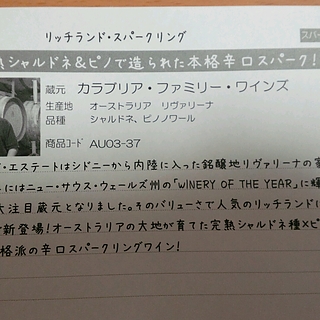 リッチランド・スパークリング
スパー
熟シャルドネ&ピノで造られた本格辛ロスパーク!
蔵元 カラブリア・ファミリー・ワインズ
生産地 オーストラリア リヴァリーナ
品種 シャルドネ、ピノノワール
商品コード AU03-37
・エステートはシドニーから内陸に入った銘醸地リヴァリーナの
にはニュー・サウス・ウェールズ州の「WINERY OF THE YEAR」に輝
大注目蔵元となりました。そのバリューさで人気のリッチランドに
新登場!オーストラリアの大地が育てた完熟シャルドネ種×ピ
格派の辛口スパークリングワイン!